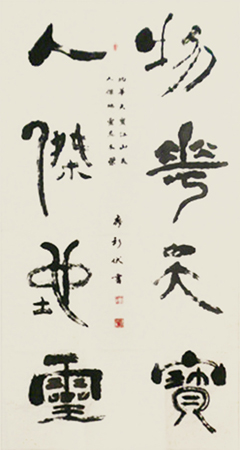 物華天寶
人傑地靈
物華天寶江山美
人傑地靈
書